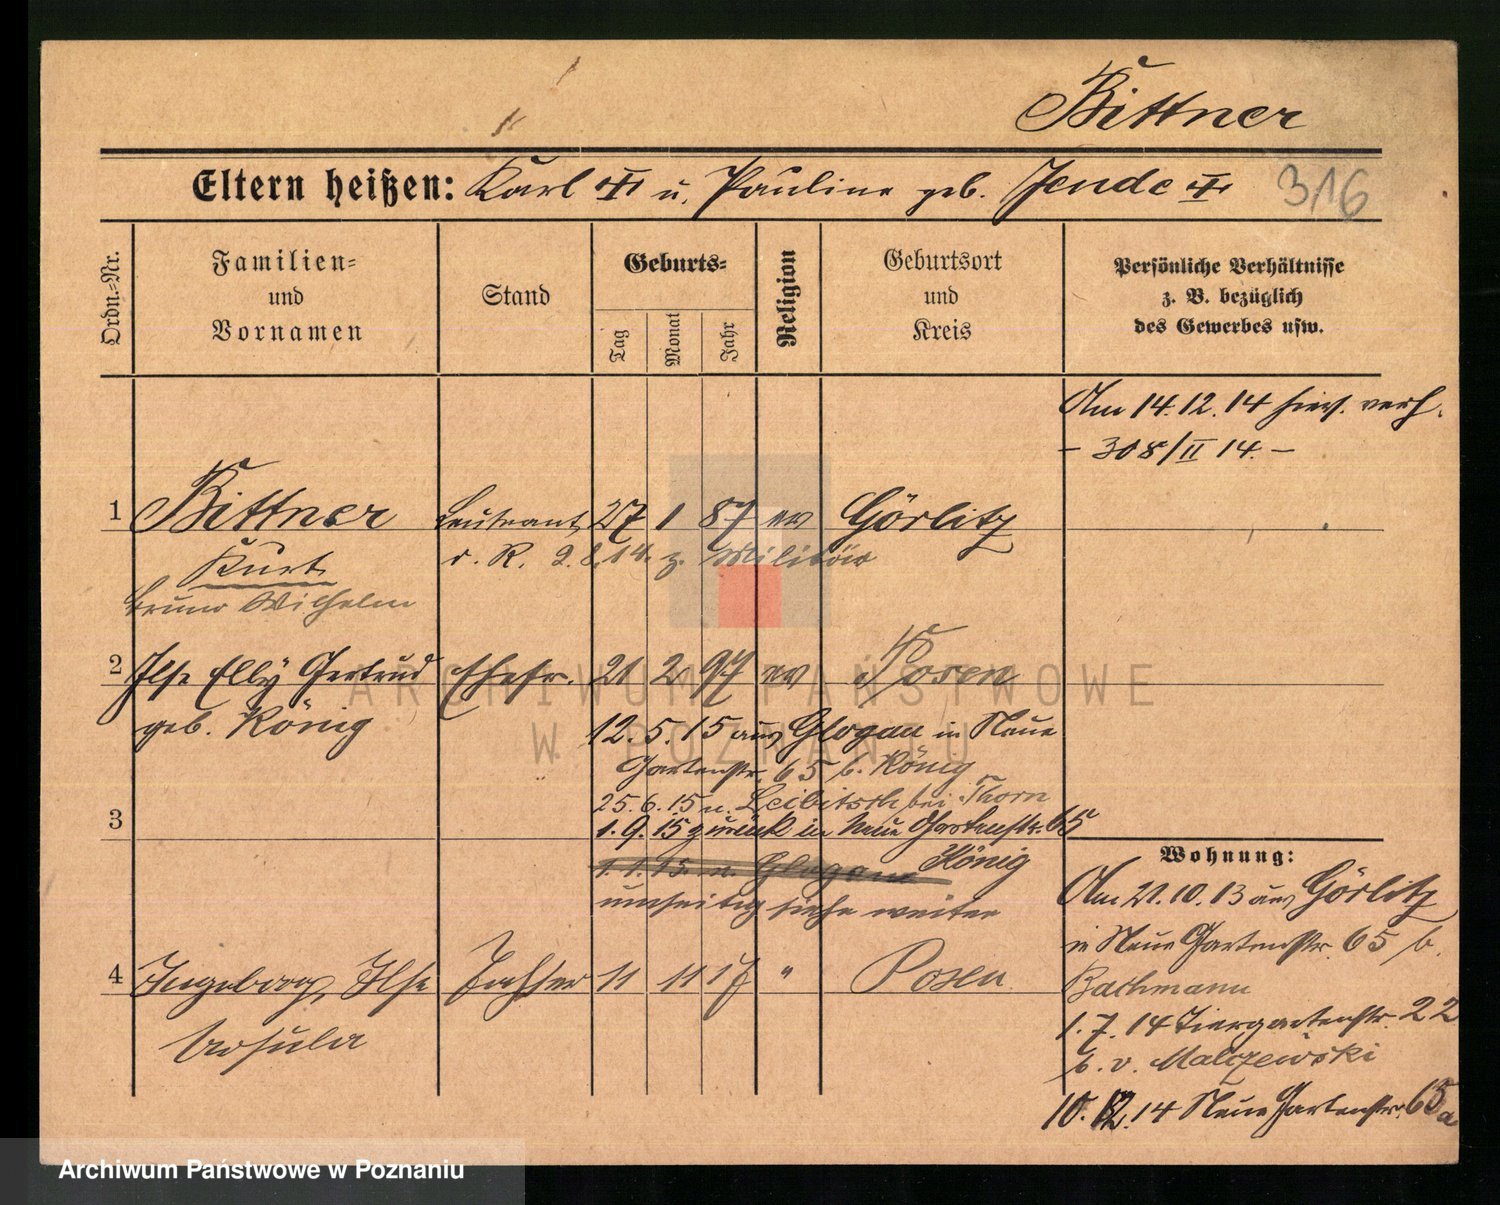 Bittner
Eltern heißen: Karl u. Pauline geb. Jende
316
Ordn.-Nr.
Familien-
und
Vornamen
Stand
Geburts-
Tag
Monat
Jahr
Religion
Geburtsort
und
Kreis
Persönliche Verhältnisse
z. B. bezüglich
des Gewerbes usw.
Am 14.12.14 hies. verh.
- 308/II 14. -
1 Bittner Leutnant 27 1 87 ev Görlitz
Kurt d. R. 2.8.14. z. Militär
Bruno Wilhelm
2 Ilse Elly Gertrud Ehefr. 21 2 97 ev Posen
geb. König
12.5.15 aus Glogau in Neue
Gartenstr. 65 b. König
25.6.15 n. Leibitsch bei Thorn
3 1.9.15 zurück in Neue Gartenstr. 65
1.1.15. n. Glogau König
umseitig siehe weiter
4 Ingeborg, Ilse Tochter 11 11 17 " Posen
Ursula
Wohnung:
Am 21.10.13 aus Görlitz
in Neue Gartenstr. 65 b.
Bachmann
1.7.14 Tiergartenstr. 22
b. v. Malczewski
10.12.14 Neue Gartenstr. 65a
ARCHIWUM PAŃSTWOWE
W POZNANIU
Archiwum Państwowe w Poznaniu